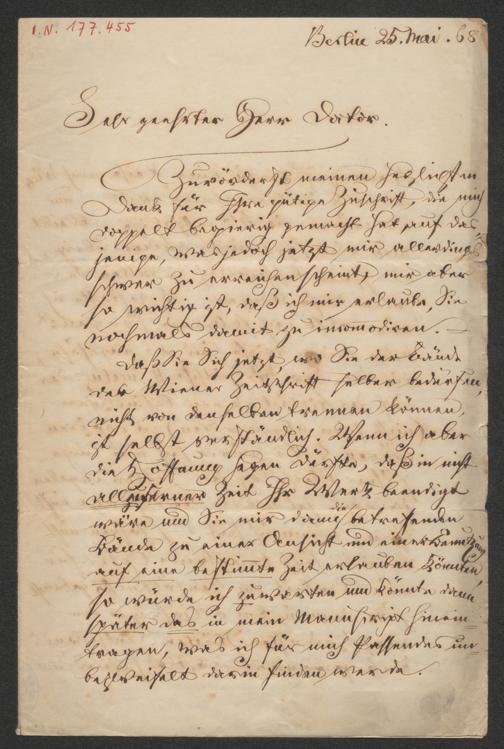 I.N. 177.455
Berlin 25. Mai. 68
Sehr geehrter Herr Doktor.
Zuvörderst meinen herzlichsten
Dank für Ihre gütige Zuschrift, die mich
doppelt begierig gemacht hat auf das-
jenige, was jedoch jetzt mir allerdings
schwer zu erreichen scheint, mir aber
so wichtig ist, daß ich mir erlaube, Sie
nochmals damit zu incomodiren. —
Daß Sie Sich jetzt, wo Sie der Bände
der Wiener Zeitschrift selber bedürfen,
nicht von denselben trennen können,
ist selbst verständlich. Wenn ich aber
die Hoffnung hegen dürfte, daß in nicht
allzuferner Zeit Ihr Werk beendigt
wäre und Sie mir dann die betreffenden
Bände zu einer Ansicht und einer Benutzung
auf eine bestimmte Zeit erlauben könnten,
so würde ich zuwarten und könnte dann
später das in mein Manuscript hinein
tragen, was ich für mich Passendes un-
bezweifelt darin finden werde.